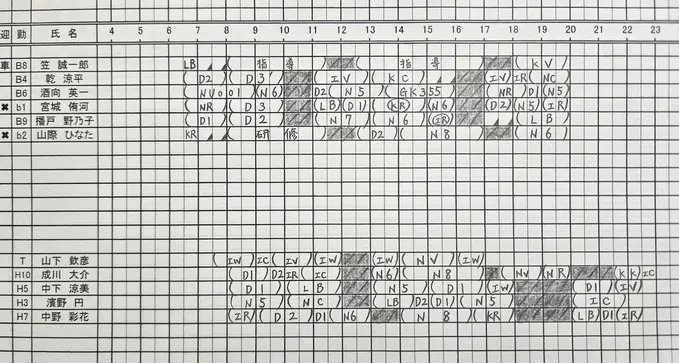 迎 勤 氏名 4 5 6 7 8 9 10 11 12 13 14 15 16 17 18 19 20 21 22 23
車 B8 笠 誠一郎 LB ( 指導 ) ( 指導 ) ( KV )
B4 乾 涼平 ( D2 ) ( D3 ) ( IV ) ( KC ) (IV) IR (NC
B6 酒向 英一 ( NU001 ) (N6) D2 ( N5 ) (GK355 ( NR ) D1 (N5)
✖ b1 宮城 侑河 ( NR ) ( D3 ) (LB) (D1) (KR) (N6) (D2) (N5) (IR)
B9 播戸 野乃子 ( D1 ) ( D2 ) ( N7 ) ( N6 ) (IR) ( LB )
✖ b2 山際 ひなた KR ( 研修 ) ( D2 ) ( N8 ) ( N6 )
T 山下 欽彦 ( IW ) IC ( IV ) (IW) (IW) ( NV ) (IW)
H10 成川 大介 ( D1 ) D2 IR ( IC ) (N6) ( N8 ) ( NV ) (NR) (KK) IC
H5 中下 涼美 ( D1 ) ( LB ) ( N5 ) ( D1 ) (IW) ( D1 ) (IV)
H3 濱野 円 ( N5 ) ( NC ) ( LB ) D2 (D1) ( N5 ) ( IC )
H7 中野 彩花 (IR) ( D2 ) D1 ( N6 ) ( N8 ) ( KR ) (LB) D1 (IR)